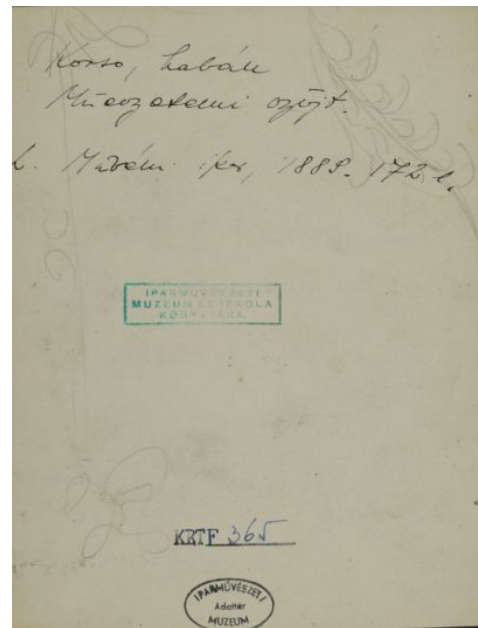 Korsó, habán
Műegyetemi gyűjt.
L. Művészi ipar, 1889. 172 l.
IPARMŰVÉSZETI
MUZEUM ÉS ISKOLA
KÖNYVTÁRA
KRTF 365
IPARMŰVÉSZETI
Adattár
MUZEUM